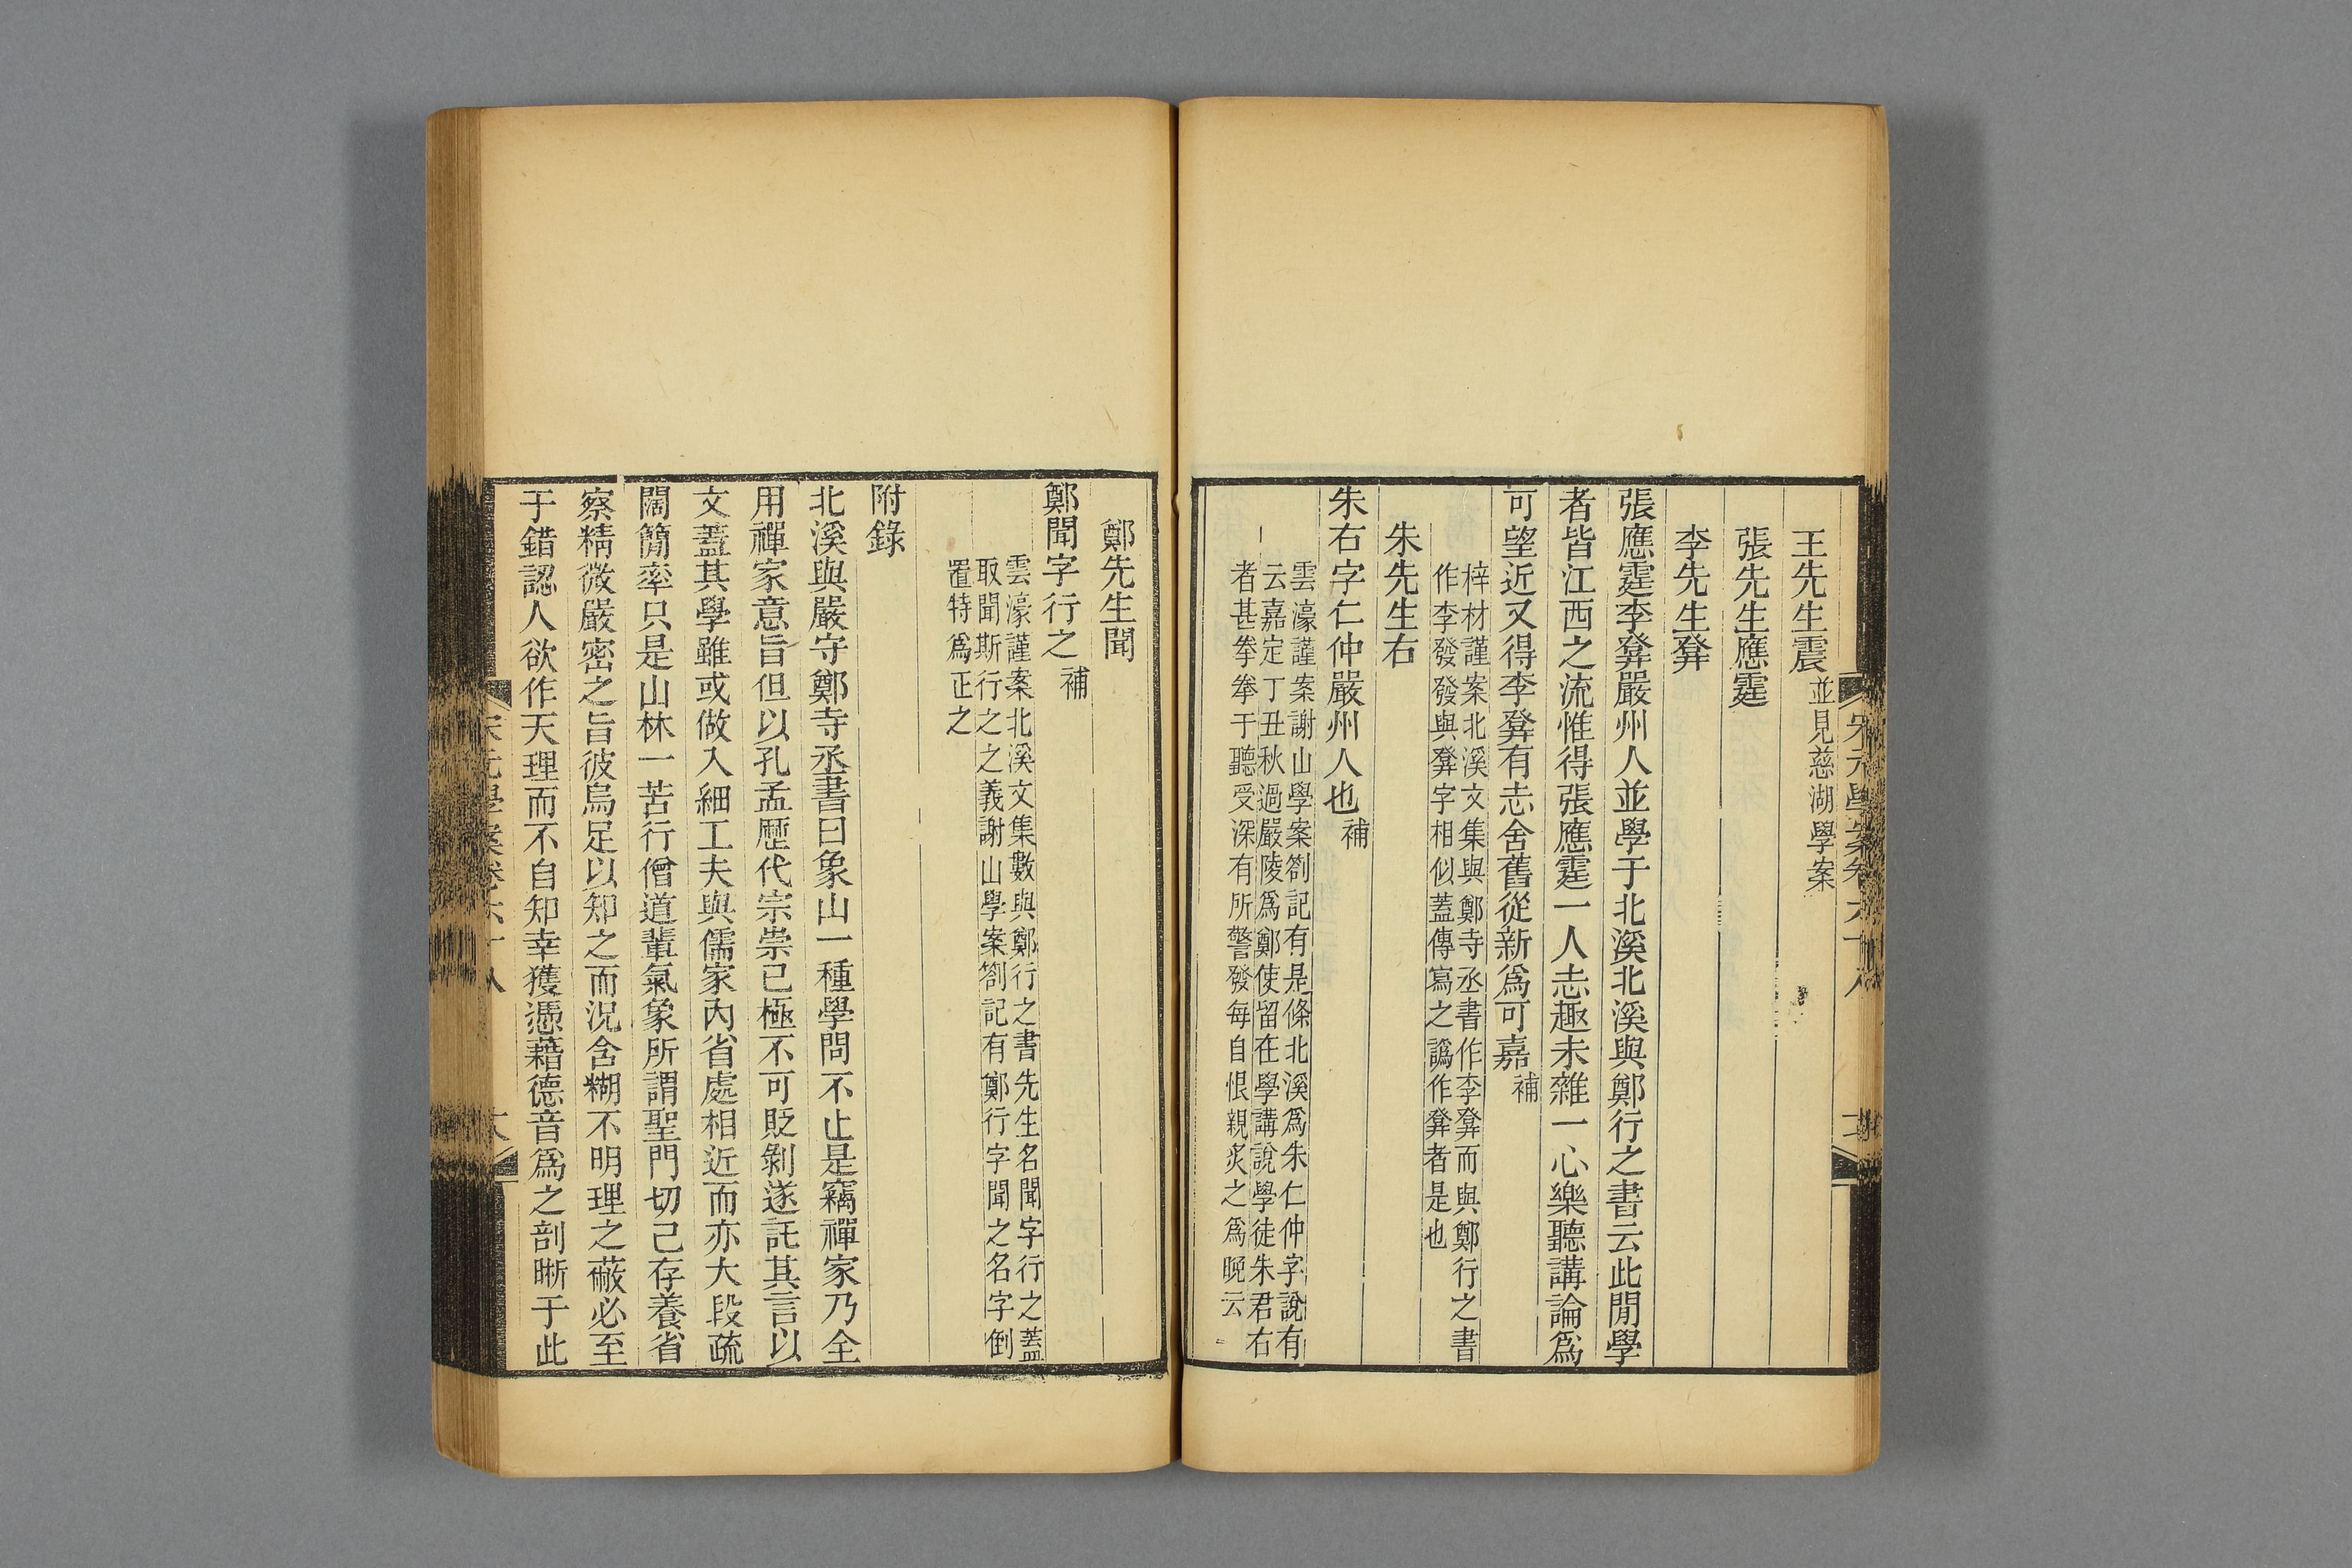 王先生震並見慈湖學案
張先生應霆
李先生𤼵
張應霆李𤼵嚴州人並學于北溪北溪與鄭行之書云此閒學
者皆江西之流惟得張應霆一人志趣未雜一心樂聽講論爲
可望近又得李𤼵有志舍舊從新爲可嘉補
梓材謹案北溪文集與鄭寺丞書作李𤼵而與鄭行之書
作李發發與𤼵字相似蓋傳寫之譌作𤼵者是也
朱先生右
朱右字仁仲嚴州人也補
雲濠謹案謝山學案劄記有是條北溪爲朱仁仲字說有
云嘉定丁丑秋過嚴陵爲鄭使留在學講說學徒朱君右
者甚拳拳于聽受深有所警發每自恨親炙之爲晚云
鄭先生聞
鄭聞字行之補
雲濠謹案北溪文集數與鄭行之書先生名聞字行之蓋
取聞斯行之之義謝山學案劄記有鄭行字聞之名字倒
置特爲正之
附錄
北溪與嚴守鄭寺丞書曰象山一種學問不止是竊禪家乃全
用禪家意旨但以孔孟歷代宗崇已極不可貶剝遂託其言以
文蓋其學雖或做入細工夫與儒家內省處相近而亦大段疏
闊簡率只是山林一苦行僧道輩氣象所謂聖門切己存養省
察精微嚴密之旨彼烏足以知之而況含糊不明理之蔽必至
于錯認人欲作天理而不自知幸獲憑藉德音爲之剖晰于此